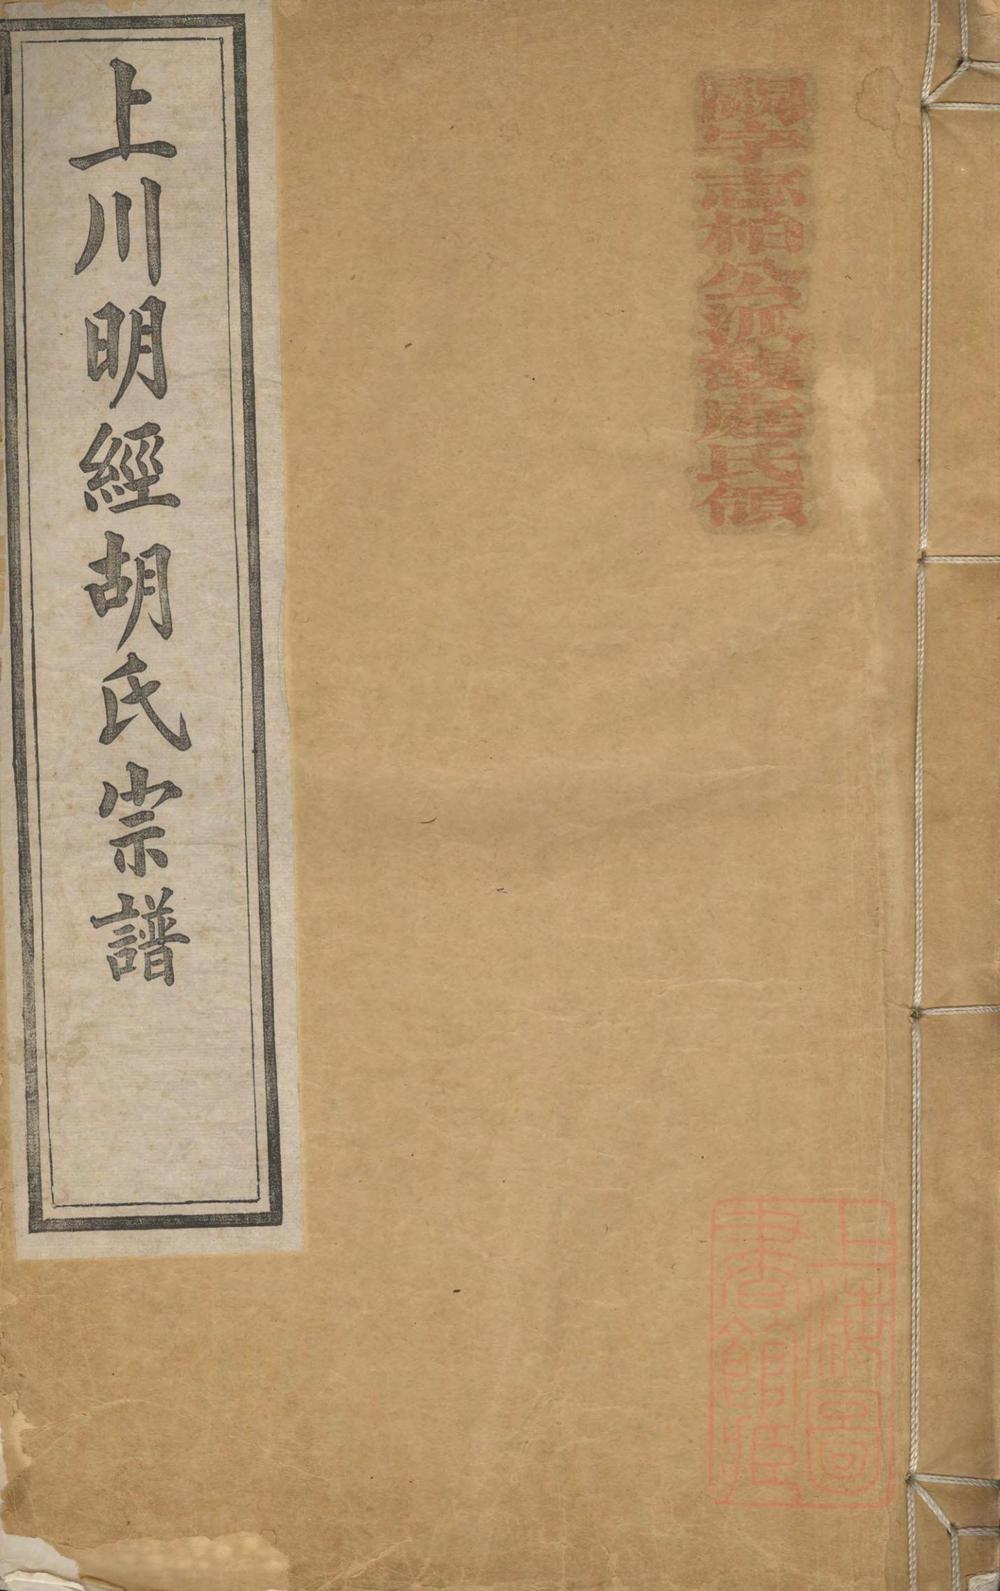 嗣字志柏公派馥庭氏領
上海圖
書館藏
上川明經胡氏宗譜